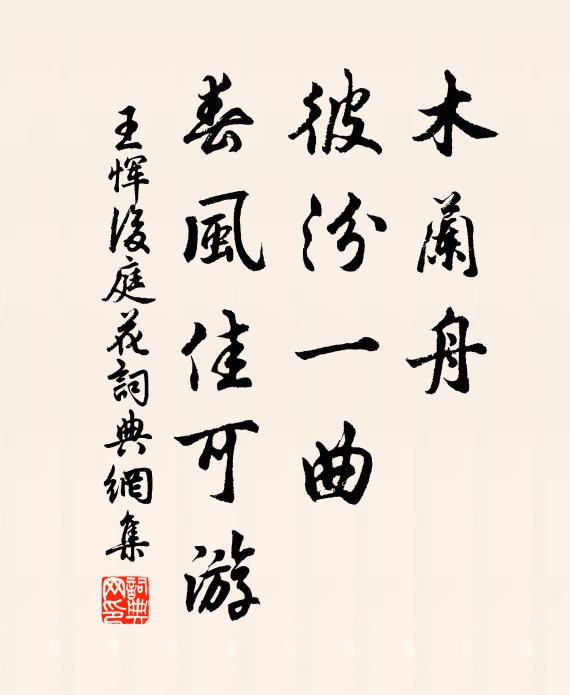 木蘭舟
彼汾一曲
春風佳可游
王惲後庭花詞典網集
詞典網印